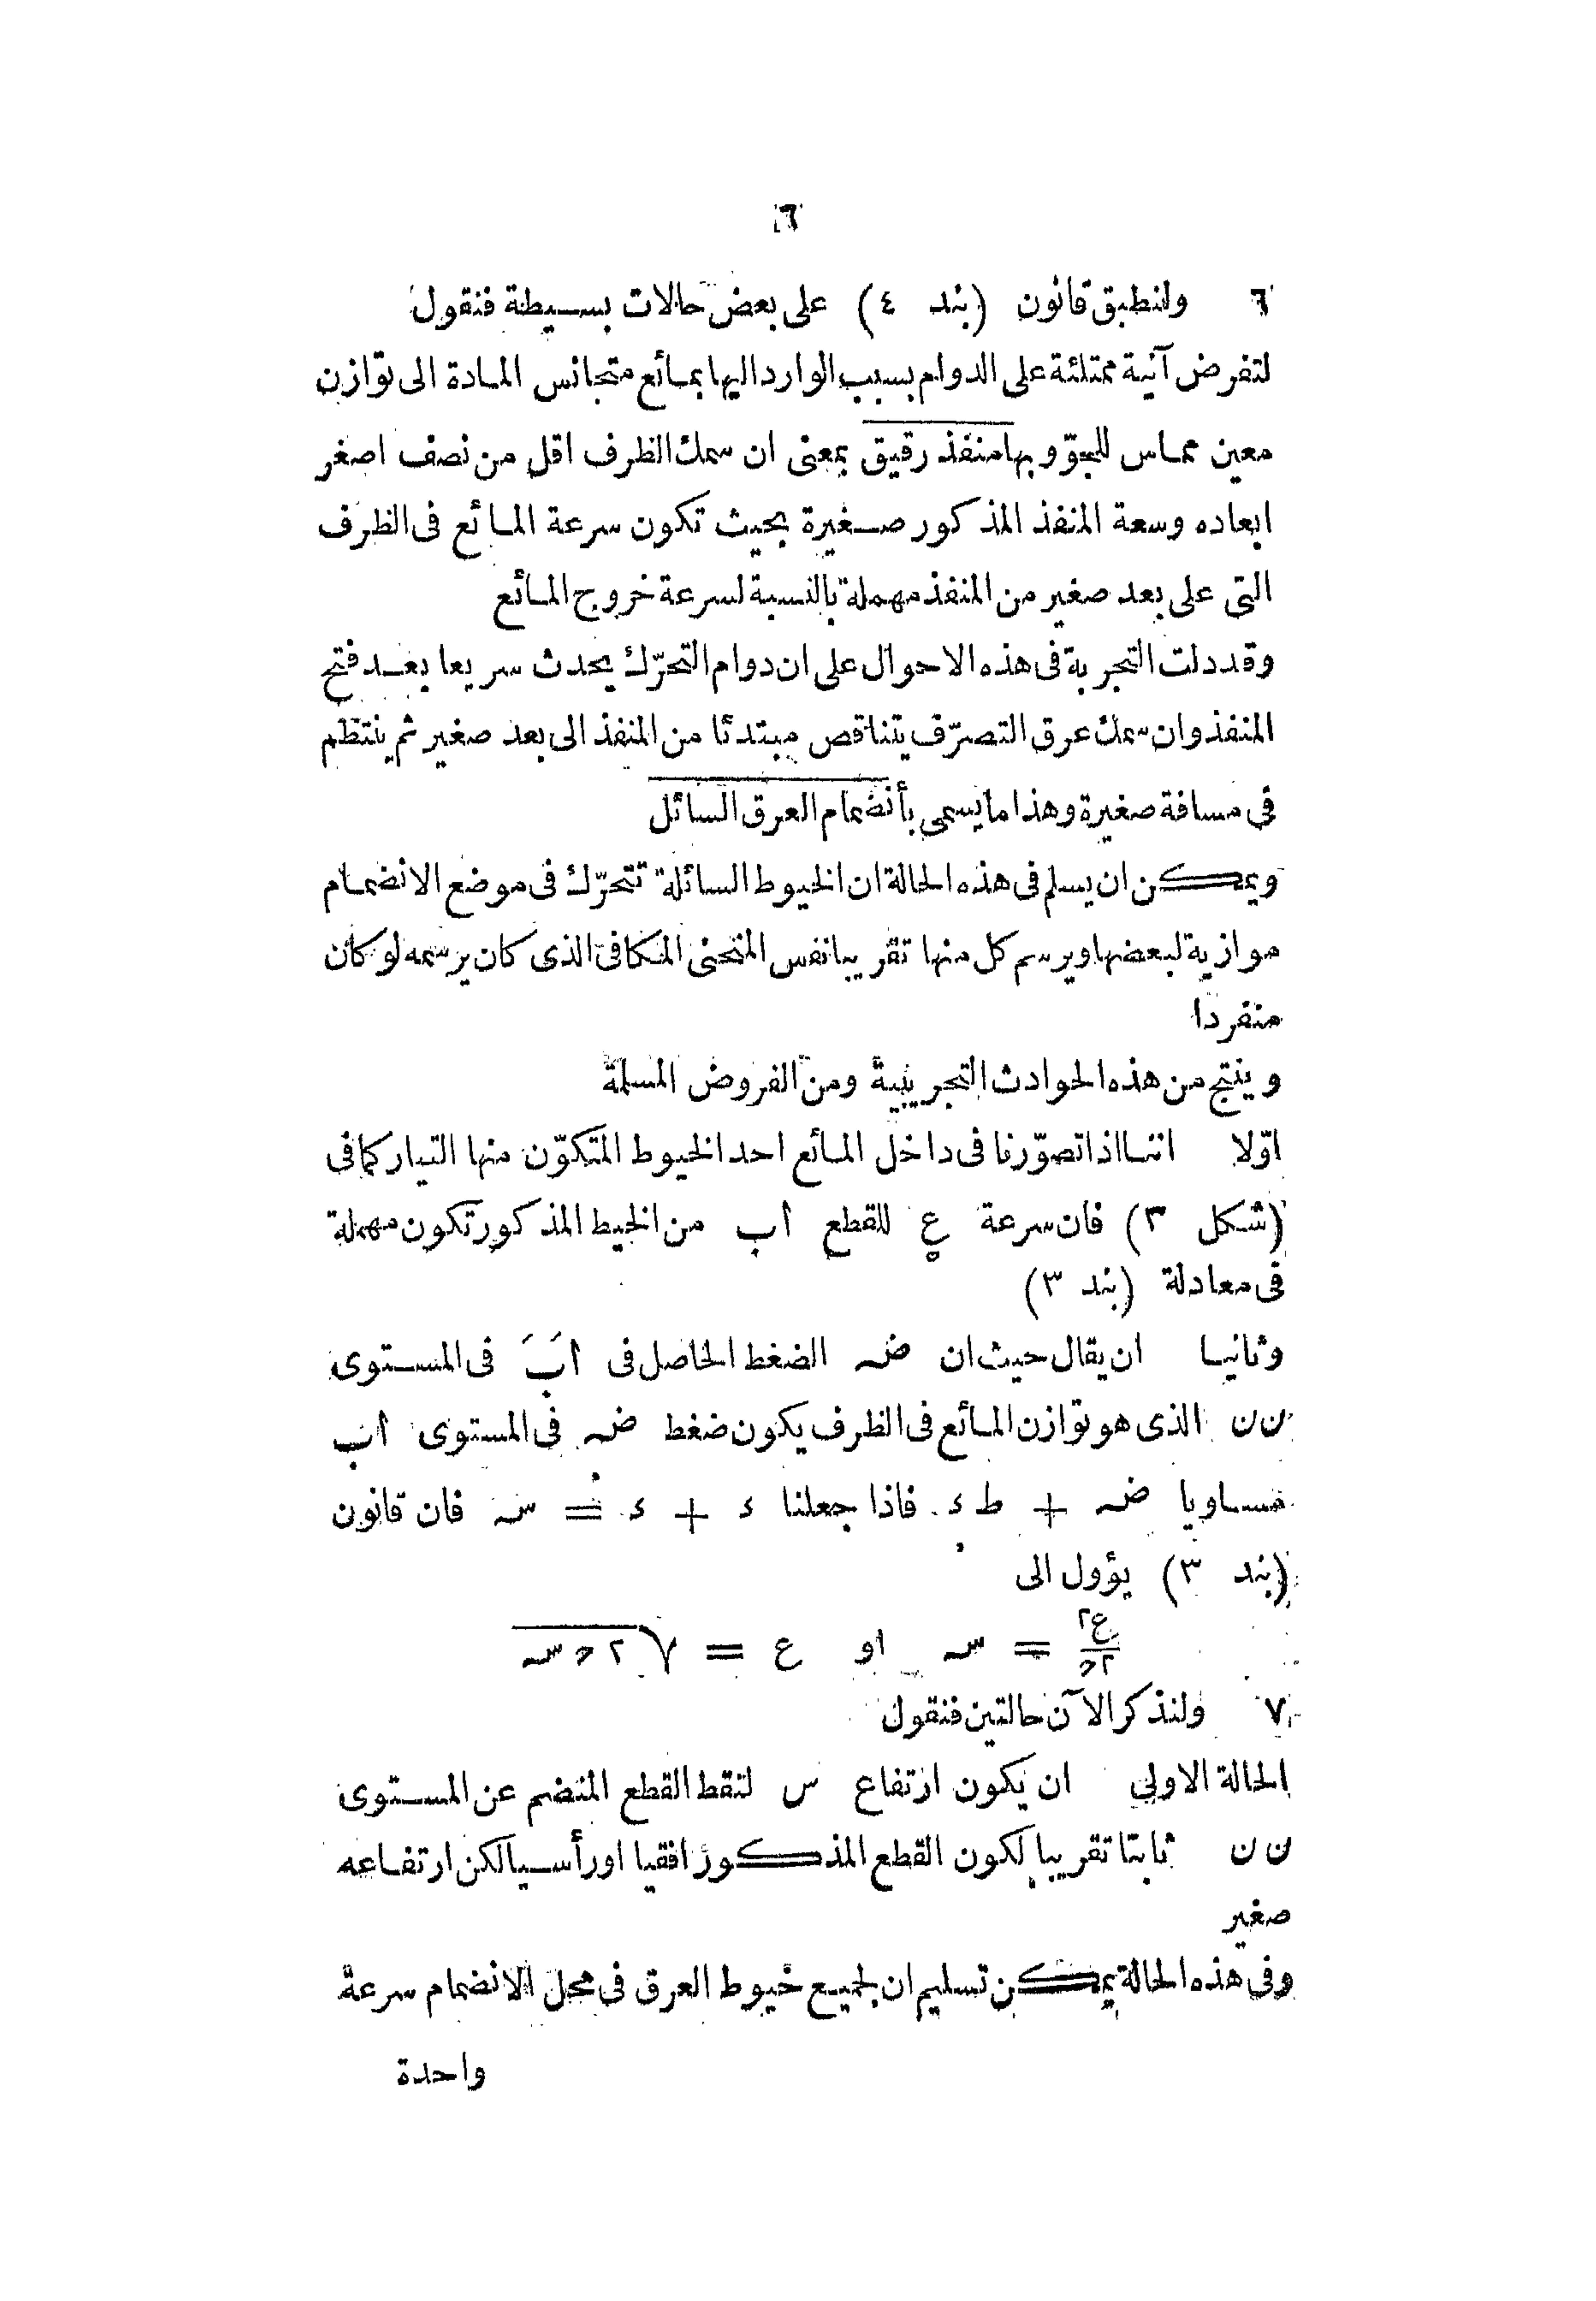 ٦
٦ ولنطبق قانون (بند ٤) على بعض حالات بسيطة فنقول
لتفرض آنية ممتلئة على الدوام بسبب الوارد اليها بمائع متجانس المادة الى توازن
معين مماس للجوّ وبها منفذ رقيق بمعنى ان سمك الظرف اقل من نصف اصغر
ابعاده وسعة المنفذ المذكور صغيرة بحيث تكون سرعة المائع فى الظرف
التى على بعد صغير من المنفذ مهملة بالنسبة لسرعة خروج المائع
وقد دلت التجربة فى هذه الاحوال على ان دوام التحرّك يحدث سريعا بعد فتح
المنفذ وان سمك عرق التصرّف يتناقص مبتدئا من المنفذ الى بعد صغير ثم ينتظم
فى مسافة صغيرة وهذا ما يسمى بأنضمام العرق السائل
ويمكن ان يسلم فى هذه الحالة ان الخيوط السائلة تتحرّك فى موضع الانضمام
موازية لبعضها ويرسم كل منها تقريبا نفس المنحنى المكافى الذى كان يرسمه لو كان
منفردا
وينتج من هذه الحوادث التجريبية ومن الفروض المسلمة
اوّلا اننا اذا تصوّرنا فى داخل المائع احد الخيوط المتكوّن منها التيار كما فى
(شكل ٣) فان سرعة ع للقطع اب من الخيط المذكور تكون مهملة
فى معادلة (بند ٣)
وثانيا ان يقال حيث ان ضـ الضغط الحاصل فى اَبَ فى المستوى
ںں الذى هو توازن المائع فى الظرف يكون ضغط ضـ فى المستوى اب
مساويا ضـ + ط ء فاذا جعلنا ء + ء = سـ فان قانون
(بند ٣) يؤول الى
ع٢/٢ح = سـ او ع = √٢ ح سـ
٧ ولنذكر الآن حالتين فنقول
الحالة الاولى ان يكون ارتفاع س لنقط القطع المنضم عن المستوى
ںں ثابتا تقريبا لكون القطع المذكور افقيا او رأسيا لكن ارتفاعه
صغير
وفى هذه الحالة يمكن تسليم ان لجميع خيوط العرق فى محل الانضمام سرعة
واحدة